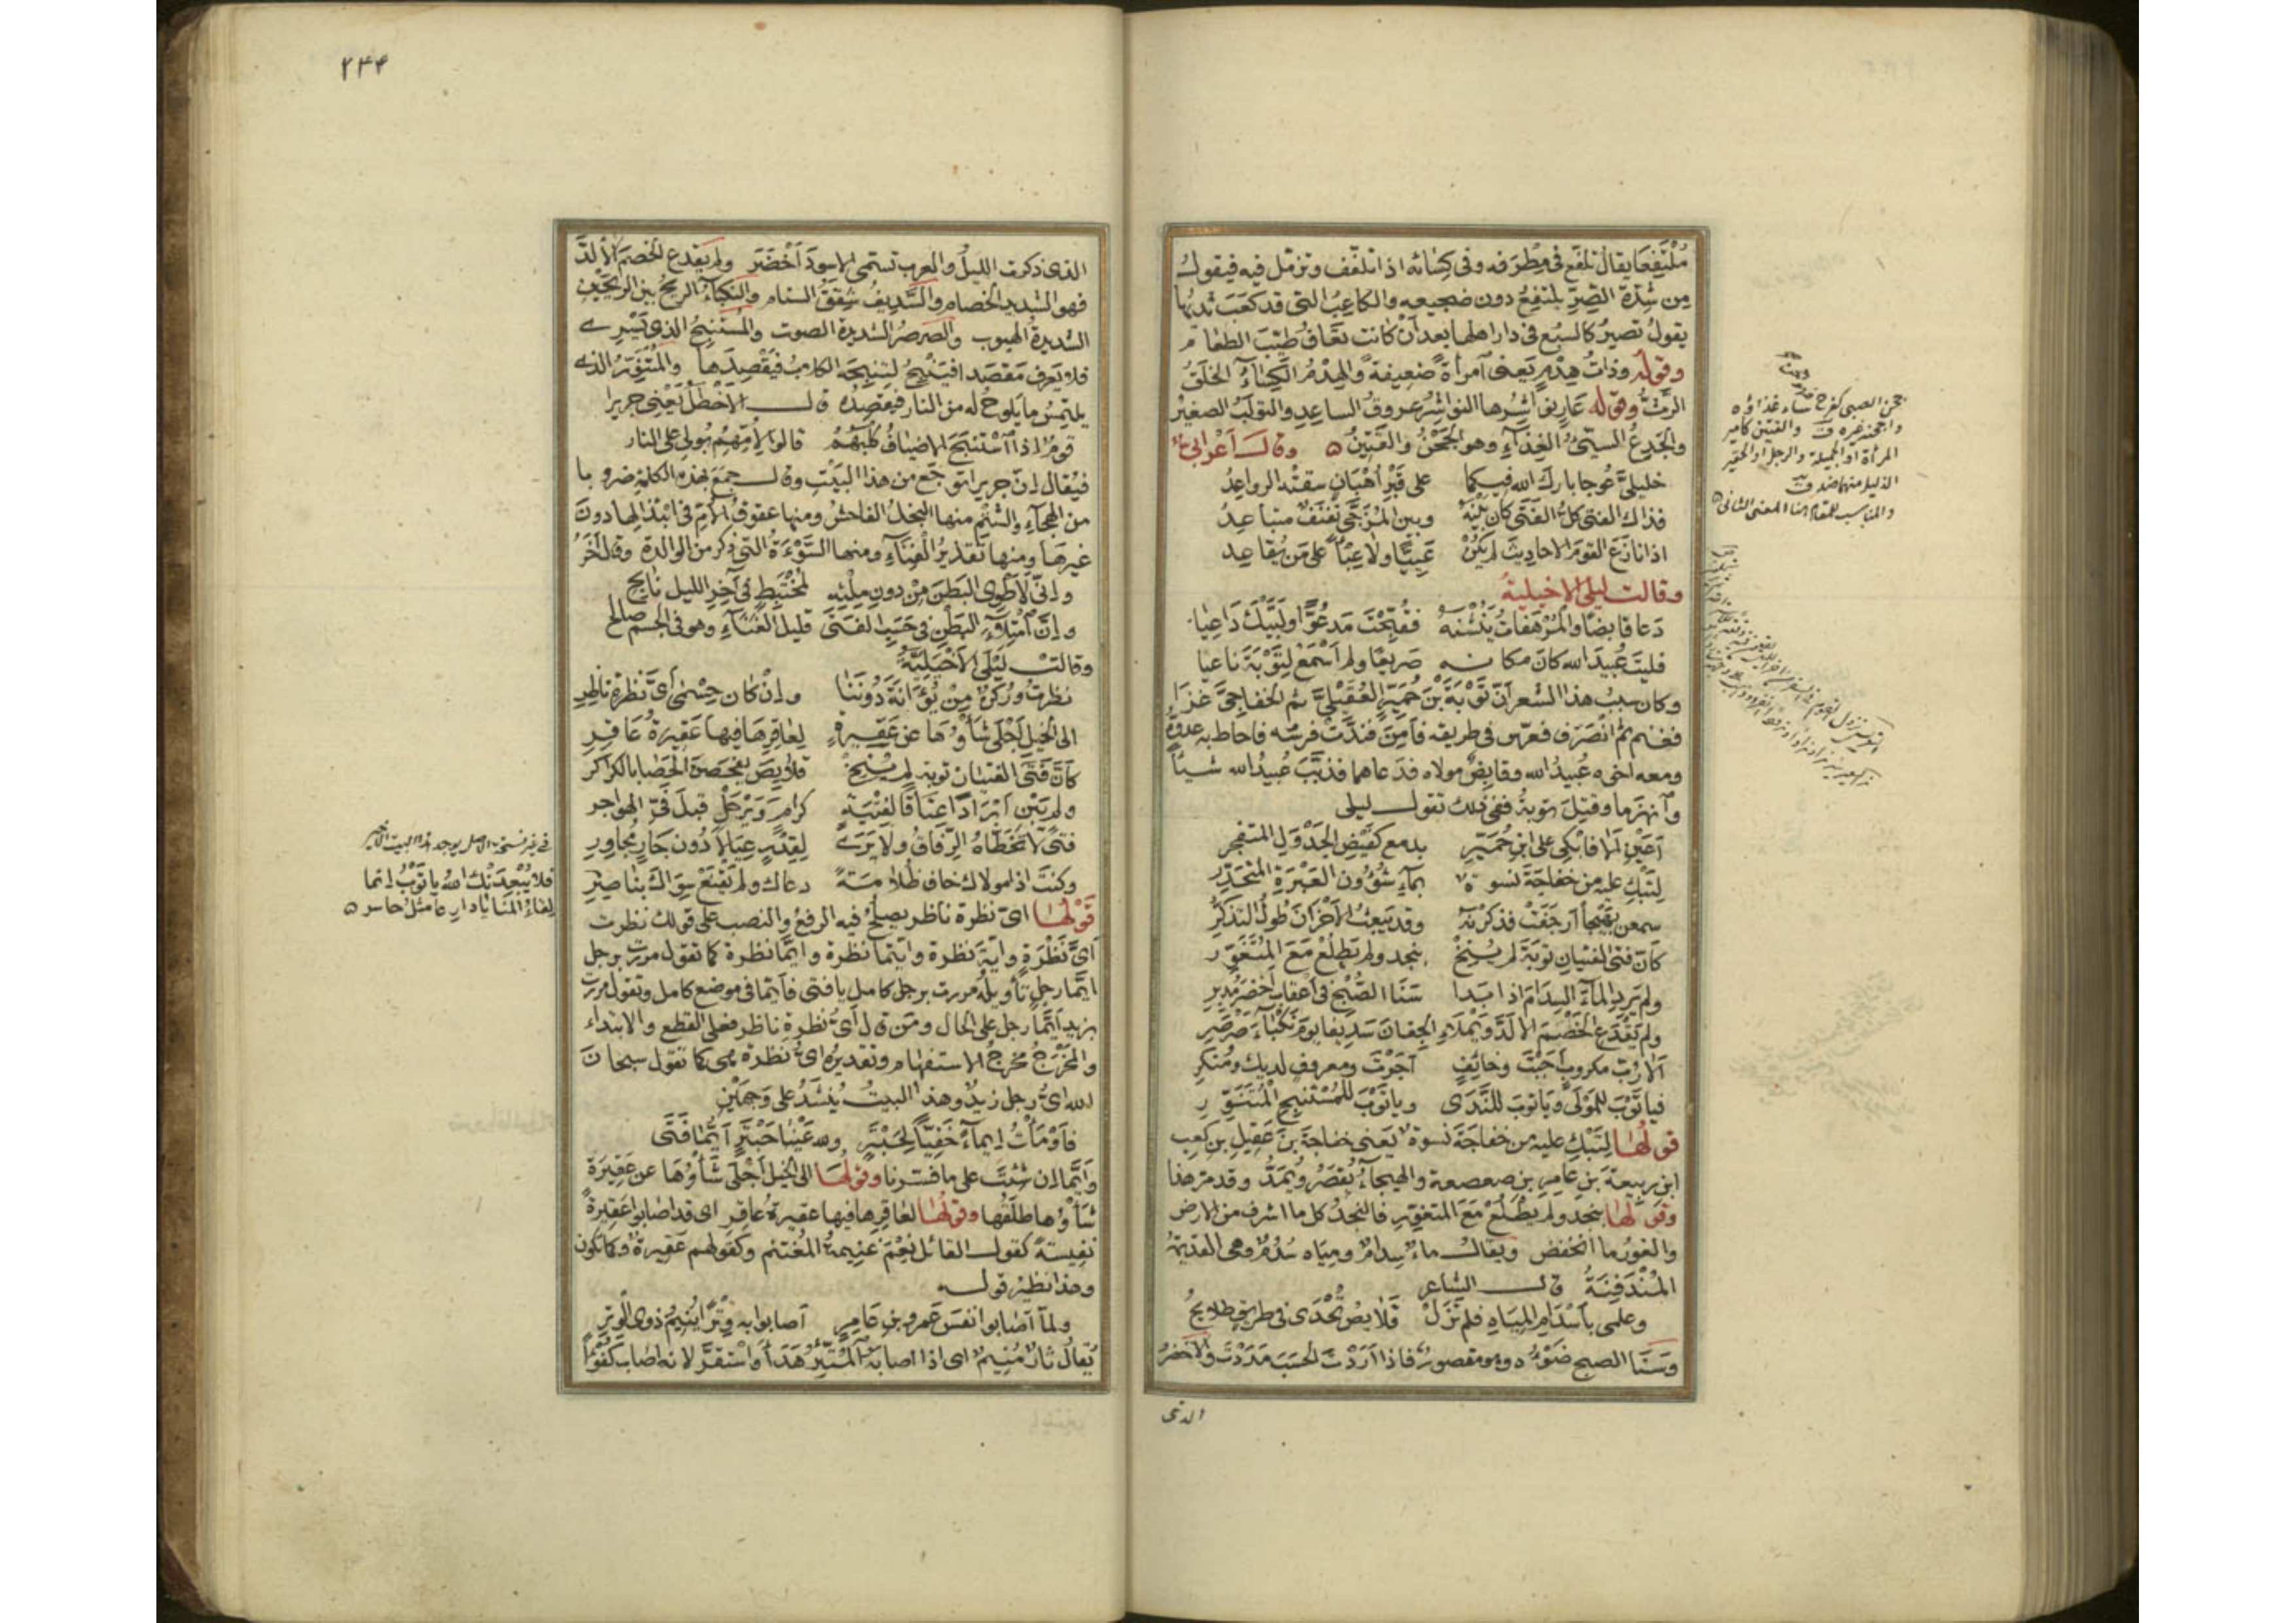 مُلْتَفِعًا يقال تلفّع في مِطْرَفه وفي كِسَائه اذا تلفّف وتزمّل فيه فيقول
مِن شِدّة الصِّرِّ تلتفِعُ دون ضجيعه والكاعِبُ التي قد كعَبَ ثديُها
يقول تصيرُ كالسبُع في دار اهلها بعد أن كانت تَعَافُ طيّبَ الطعام
وقوله وذاتُ هِدْمٍ يَعنى آمرأةً ضعيفةً والهِدْمُ الكِسَاءُ الخلَقُ
الرَثُّ وقوله عَارٍ نواشِرُها النواشِرُ عروقُ الساعِدِ والتولَبُ الصغيرُ
والجَدِعُ السيّئُ الغِذَاءِ وهو الجَحِنُ والقَتِينُ ه وقالَ أعْرابيّ
خليليَّ عُوجا باركَ الله فيكما على قَبْرِ أهْبَانٍ سقتْه الرواعِدُ
فذاك الفتى كلُّ الفَتَى كان بَيْنَهُ وبين المُزَجَّى نَفْنَفٌ متباعِدُ
اذا نازَعَ القومَ الاحاديثَ لم يكُنْ عَيِيًّا ولا عِبْئًا على مَن يُقاعِد
وقالت ليلى الاخيلية
دَعا قابضًا والمُرْهَفاتُ يَنُشْنَهُ فقُبِّحْتَ مَدعُوًّا ولَبَّيْكَ دَاعِيَا
فليتَ عُبيدَ الله كانَ مكانه صَرِيعًا ولم أسْمَعْ لِتَوْبَةَ ناعيا
وكان سببُ هذا الشعر أنّ تَوْبَةَ بْنَ حُمَيّرٍ العُقَيْليَّ ثم الخفاجيَّ غَزَا
فغنم ثم انْصَرَف فعرّس في طريقه فأمِنَ فندَّتْ فرسُه فاحاط به عدوُّه
ومعه اخوه عُبيدُ الله وقابضٌ مولاه فدَعاهما فذبّبَ عُبيدُ الله شيئًا
وآنهزَما وقُتِلَ توبةُ ففي ذلك تقول ليلى
أعَيْنِ ألا فآبْكِي على ابنِ حُمَيّرٍ بدمع كفَيْضِ الجَدْوَلِ المتفجِر
لِتَبْكِ عليه من خفاجَةَ نسوةٌ بمآءِ شُؤُونِ العَبْرَةِ المتحدِّرِ
سمعن بهَيْجا أرْجَفَتْ فذكرْنَهُ وقد يَبعَثُ الأحْزانَ طُولُ التذكّرِ
كأنّ فتى الفتيانِ توبَةَ لم يُنِخْ بنجدٍ ولم يَطلُعْ مَعَ المُتَغَوِّرِ
ولم يَرِدِ الماءَ السِدَامَ اذا بَدا سَنَا الصُبْحِ في أعْقابِ أخضَرَ مُدبِرِ
ولم يَقْدَعِ الخَصْمَ الالَدَّ ويَمْلأِ الجِفانَ سَدِيفًا يومَ نَكْبَاءَ صَرْصَرِ
ألا رُبّ مكروبٍ أجَبْتَ وخائِفٍ أجَرْتَ ومعروفٍ لديك ومُنكَرِ
فيا تَوْبَ للمَوْلَى ويا توبَ للنَدَى ويا تَوْبَ للمُسْتَنْبِحِ المُتَنَوِّرِ
قولُها لِتَبْكِ عليه من خفاجةَ نسوةٌ يَعنى خفاجةَ بنَ عَقِيلِ بن كعبِ
ابنِ ربيعةَ بنِ عامِرِ بن صعصعة والهيجاءُ يُقصَرُ ويُمَدُّ وقد مرّ هذا
وقولُها بنجدٍ ولم يَطْلُعْ مَعَ المتغوّرِ فالنجدُ كل ما اشرف من الارض
والغورُ ما انخفض ويقال ماءٌ سِدامٌ ومِيَاه سُدُمٌ وهي القديمةُ
المُنْدَفِنَةُ قال الشاعر
وعلمى بأسْدَامِ المِيَاهِ فلم تَزَلْ قَلَائِصُ تُحْدَى في طريقٍ طلائحُ
وسَنَا الصبح ضَوْءُه وهو مقصورٌ فاذا أرَدْتَ الحَسَبَ مَدَدْتَ والأخضرُ
الذى
جحن الصبى كفرح ساء غذاؤه
واجحنه غيره ق والقتين كامير
المرأة او الجميلة والرجل او الحقير
الذليل منهما ضد ق
والمناسب للمقام هنا المعنى الثانى ه
٢٣٤
الذى ذكرت الليلُ والعرب تسمى الاسودَ أخْضَرَ ولم يَقدع الخصمَ الألدَّ
فهو الشديد الخصام والسَّدِيفُ شِقَقُ السنام والنكباءُ الريحُ بين الريحَيْن
الشديدةُ الهبوب والصَرصَرُ الشديدة الصوت والمُسْتَنبِحُ الذى يَسْرِى
فلا يَعرف مَقصَدًا فيَنْبَحُ لتنبحَه الكلابُ فيَقْصِدَها والمُتَنَوِّرُ الذى
يلتمِسُ ما يَلوحُ له من النار فيقصِدُه قال الأخطل يَعْنى جريرا
قومٌ اذا آسْتَنبَحَ الاضيافُ كلْبَهُمُ قالوا لأُمّهِمِ بُولى على النار
فيُقال إنّ جريرا توجّع من هذا البَيْتِ وقال جمَعَ بهذه الكلمةِ ضروبا
من الهجاءِ والشَتْمِ منها البخلُ الفاحشُ ومنها عقوقُ الأمِّ في ابْتذالِها دونَ
غيرهَا ومنها تقذيرُ الفِنَاءِ ومنها السَوْءَةُ التى ذكر من الوالدة وقال آخَرُ
وإنّى لَأطْوِى البَطنَ مِنْ دونِ مِلْئِهِ لمُخْتَبِطٍ في آخِرِ الليلِ نابِحِ
وإنَّ آمْتِلاءَ البَطْنِ في حَسَبِ الفتَى قليلُ الغَنَاءِ وهو في الجسم صالح
وقالت لَيْلَى الأخيليّةُ
نظرتُ ورُكْنٌ مِنْ بُوَانَةَ دُونَنَا وإنْ كان حِسْمَى أىَّ نظرةِ ناظِرِ
الى الخيلِ أجْلَى شَأْوُها عن عَقِيرةٍ لِعاقِرِهَا فيها عَقِيرةُ عَاقِرِ
كأنّ فَتَى الفتيان توبةَ لم يُنِخْ قلائِصَ يَفحَصنَ الحَصَا بالكَراكِرِ
ولم يَبْنِ أبْرَادًا عِتَاقًا لفِتْيَةٍ كرامٍ ويَرْحَلْ قبلَ فَىْءِ الهواجر
فتًى لا تَخَطَّاهُ الرِّفاقُ ولا يَرَى لِقِدْرٍ عِيَالًا دُونَ جَارٍ مُجاوِرِ
وكنتَ اذا مولاك خاف ظُلامَةً دعاك ولم يَقنَعْ سِوَاكَ بناصِرِ
قَوْلُها اىَّ نظرة ناظر يصلُحُ فيه الرفعُ والنصب على قولك نظرت
أىَّ نَظْرَةٍ وأيّةَ نظرة وأيّتما نظرة وأيّما نظرة كما تقول مررت برجل
أيّما رجلٍ تأويلُه مررت برجل كامل يا فتى فأيّما في موضع كامل وتقول مررت
بزيد أيّمَا رجل على الحال ومَن قال أىُّ نظرةِ ناظر فعلى القطع والابتداء
والمَخْرَجُ مَخرَجُ الاستفهام وتقديرُه أىُّ نظرة هي كما تقول سبحان
الله أىُّ رجل زيدٌ وهذا البيتُ يُنشَدُ على وَجهَيْن
فأوْمَأْتُ إيماءً خَفِيًّا لحَبْتَرٍ ولله عَيْنا حَبْتَرٍ أيُّمَا فَتَى
وأيَّما إن شئتَ على ما فسّرنا وقولُها الى الخيل أجْلَى شَأْوُهَا عن عَقِيرَة
شَأْوُها طَلَقُها وقولُها لعاقِرِها فيها عقيرةُ عاقِرِ اى قد اصابوا عَقِيرةً
نفيسةً كقول القائل نِعْمَ غنيمةُ المُغتنِم وكقولهم عَقِيرةٌ وكما تكون
وهذا نظيرُ قوله
ولمّا أصَابوا نفسَ عَمرِو بنِ عَامِرٍ أصابوا به وِتْرًا يُنِيمُ ذوى الوِتْرِ
يُقالُ ثَأرٌ مُنِيمٌ اى اذا اصابه المُثَّئِرُ هَدَأ وآستقرّ لانه اصاب كُفُؤًا
فلا يُبْعِدَنْكَ اللهُ يا تَوْبُ إنّما
لِقاءُ المنايا دارِعًا مثلُ حاسر ه